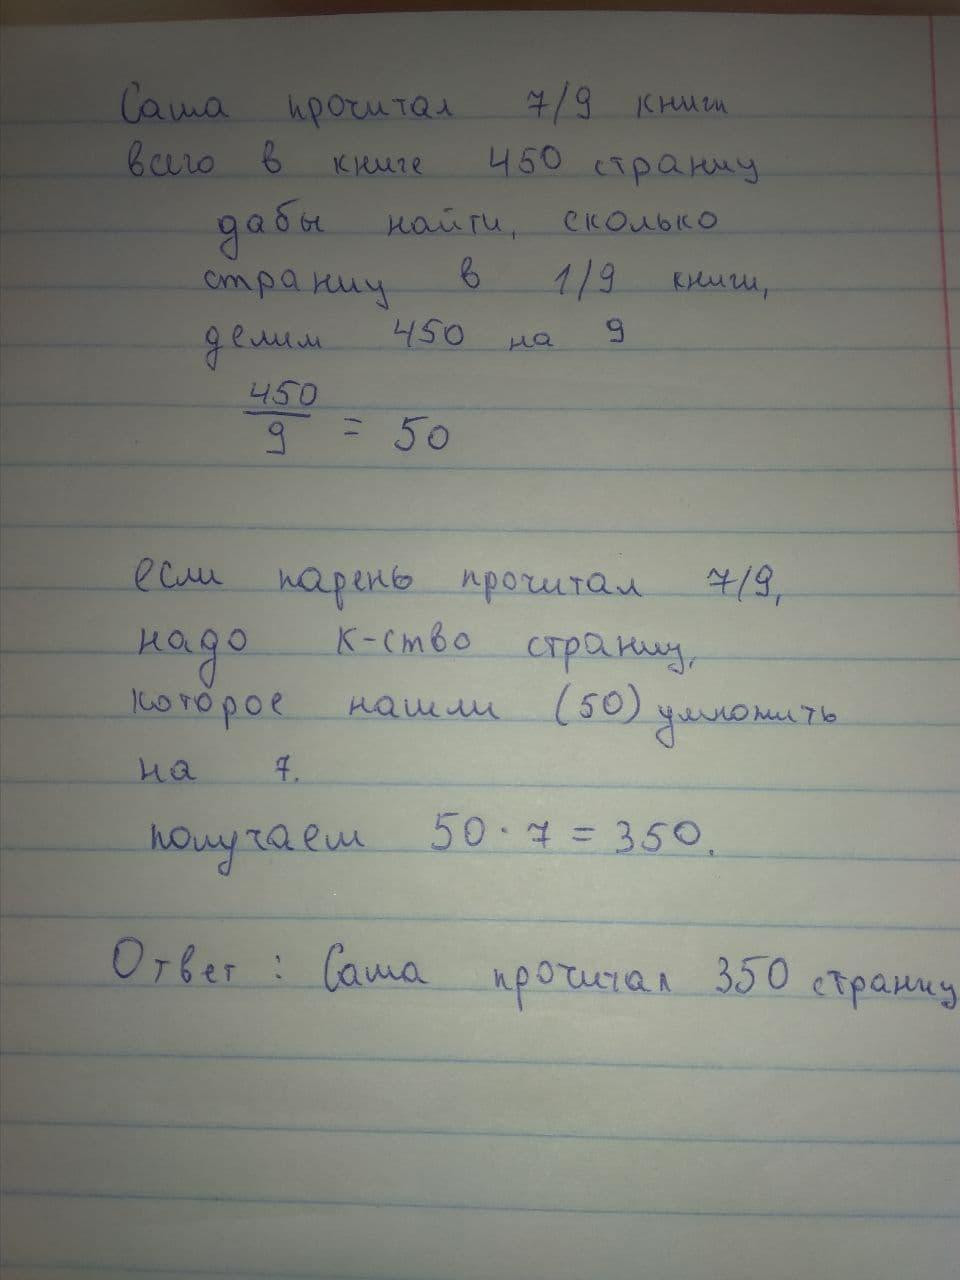 Саша прочитал 7/9 книги
всего в книге 450 страниц
дабы найти, сколько
страниц в 1/9 книги,
делим 450 на 9
450/9 = 50
если парень прочитал 7/9,
надо к-ство страниц,
которое нашли (50) умножить
на 7.
получаем 50 · 7 = 350.
Ответ : Саша прочитал 350 страниц